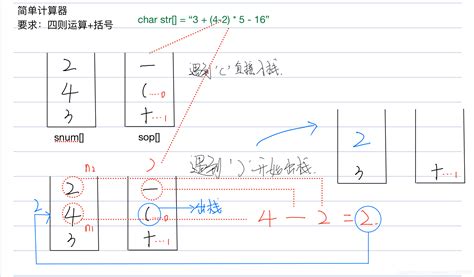 简单计算器
要求：四则运算+括号
char str[] = “3 + (4-2) * 5 - 16”
2
4
3
—
(...0
+...1
遇到‘(’直接入栈.
snum[]
sop[]
2
3
+...1
遇到‘)’开始出栈.
n2
)
2
4
n1
3
—
(...0
+...1
出栈
4 — 2 = 2
2